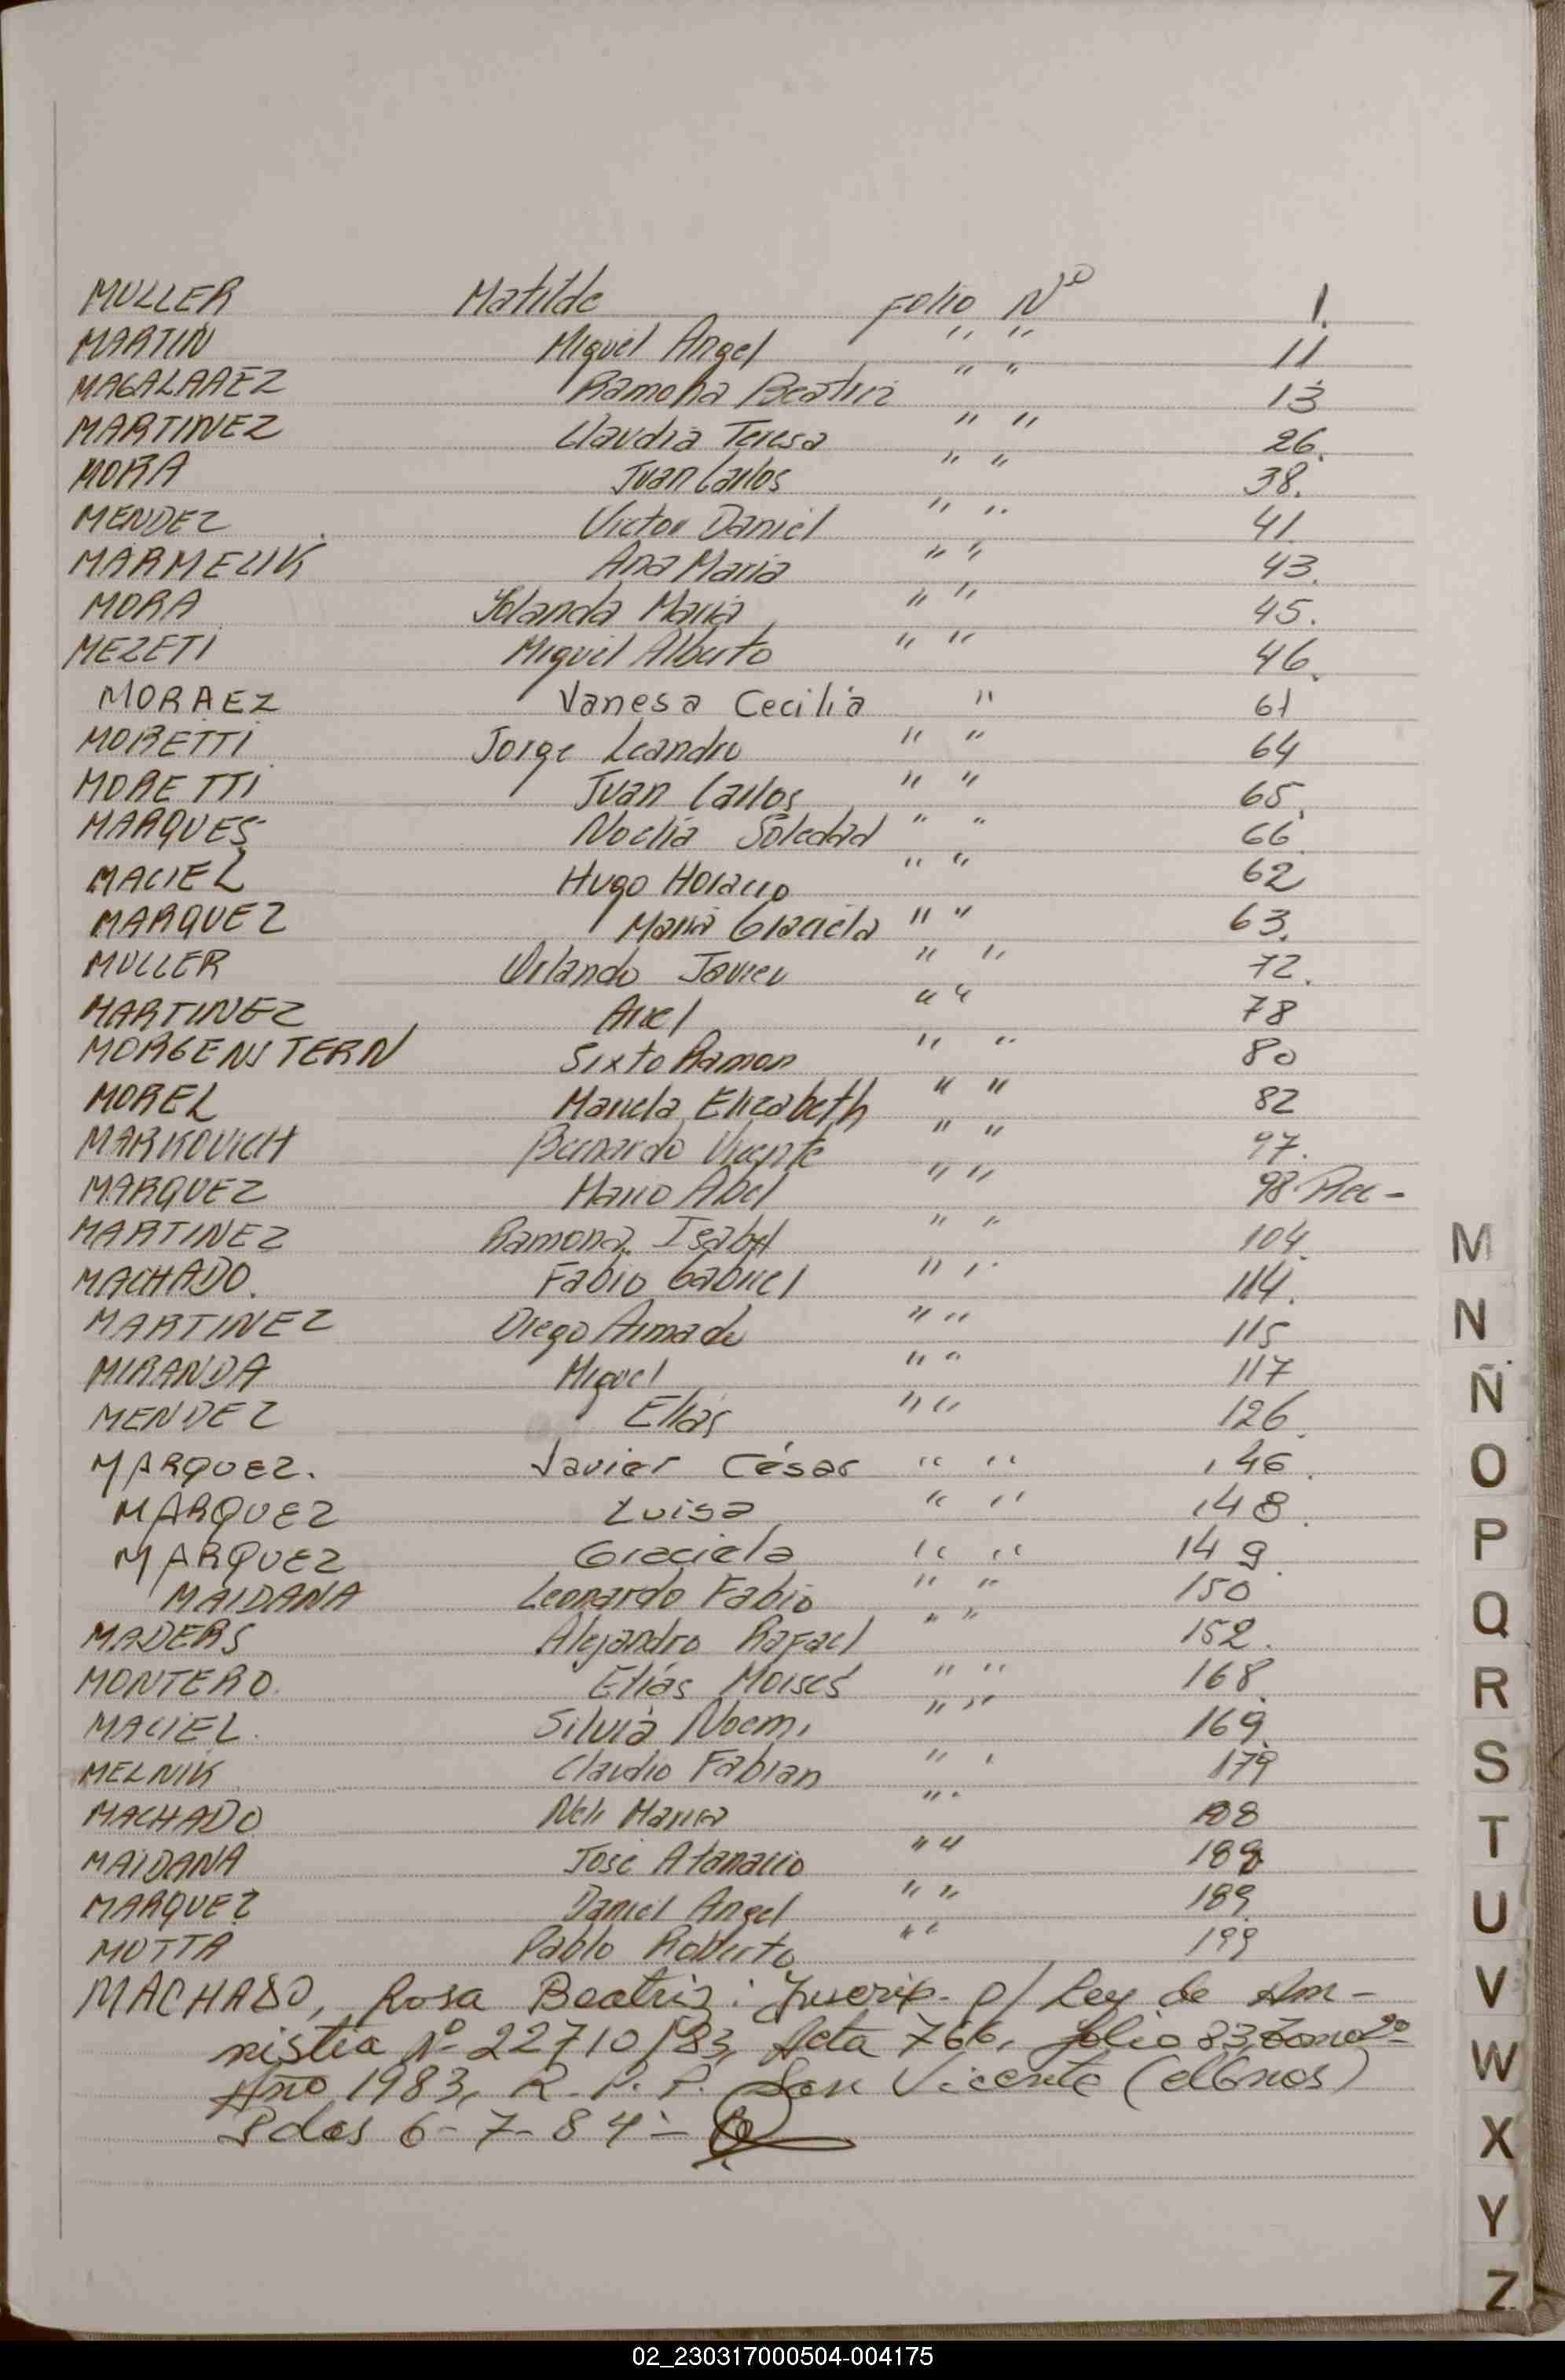 MULLER Matilde Folio Nº 1.
MARTIN Miguel Angel " " 11
MAGALAAEZ Ramona Beatriz " " 13
MARTINEZ Claudia Teresa " " 26.
MORA Juan Carlos " " 38.
MENDEZ Victor Daniel " " 41
MARMELIK Ana Maria " " 43.
MORA Yolanda Maria " " 45.
MEZETI Miguel Alberto " " 46.
MORAEZ Vanesa Cecilia " 61
MORETTI Jorge Leandro " " 64
MORETTI Juan Carlos " " 65.
MARQUES Noelia Soledad " " 66.
MACIEL Hugo Horacio " " 62
MARQUEZ Maria Graciela " " 63.
MULLER Orlando Javier " " 72.
MARTINEZ Ariel " " 78
MORGENSTERN Sixto Ramon " " 80
MOREL Mariela Elizabeth " " 82
MARKOVICH Bernardo Vicente " " 97.
MARQUEZ Mario Abel " " 98 Rec-
MARTINEZ Ramona Isabel " " 104.
MACHADO. Fabio Gabriel " " 114.
MARTINEZ Diego Armado " " 115
MIRANDA Miguel " " 117
MENDEZ Elias " " 126.
MARQUEZ. Javier César " " 146.
MARQUEZ Luisa " " 148.
MARQUEZ Graciela " " 149.
MAIDANA Leonardo Fabio " " 150
MADERS Alejandro Rafael " " 152.
MONTERO. Elías Moisés " " 168.
MACIEL. Silvia Noemi " " 169.
MELNIK Claudio Fabian " " 179
MACHADO Neli Maria " "
MAIDANA José Atanacio " " 188
MARQUEZ Daniel Angel " " 189.
MOTTA Pablo Roberto " " 199
MACHADO, Rosa Beatriz: Inscrip. p/ Ley de Am-
nistia Nº 22710/83, Acta 766, folio 83, Tomo 2º
Año 1983, R.P.P. San Vicente (Mnos)
Pdas 6-7-84-
M
N
Ñ
O
P
Q
R
S
T
U
V
W
X
Y
Z
02_230317000504-004175